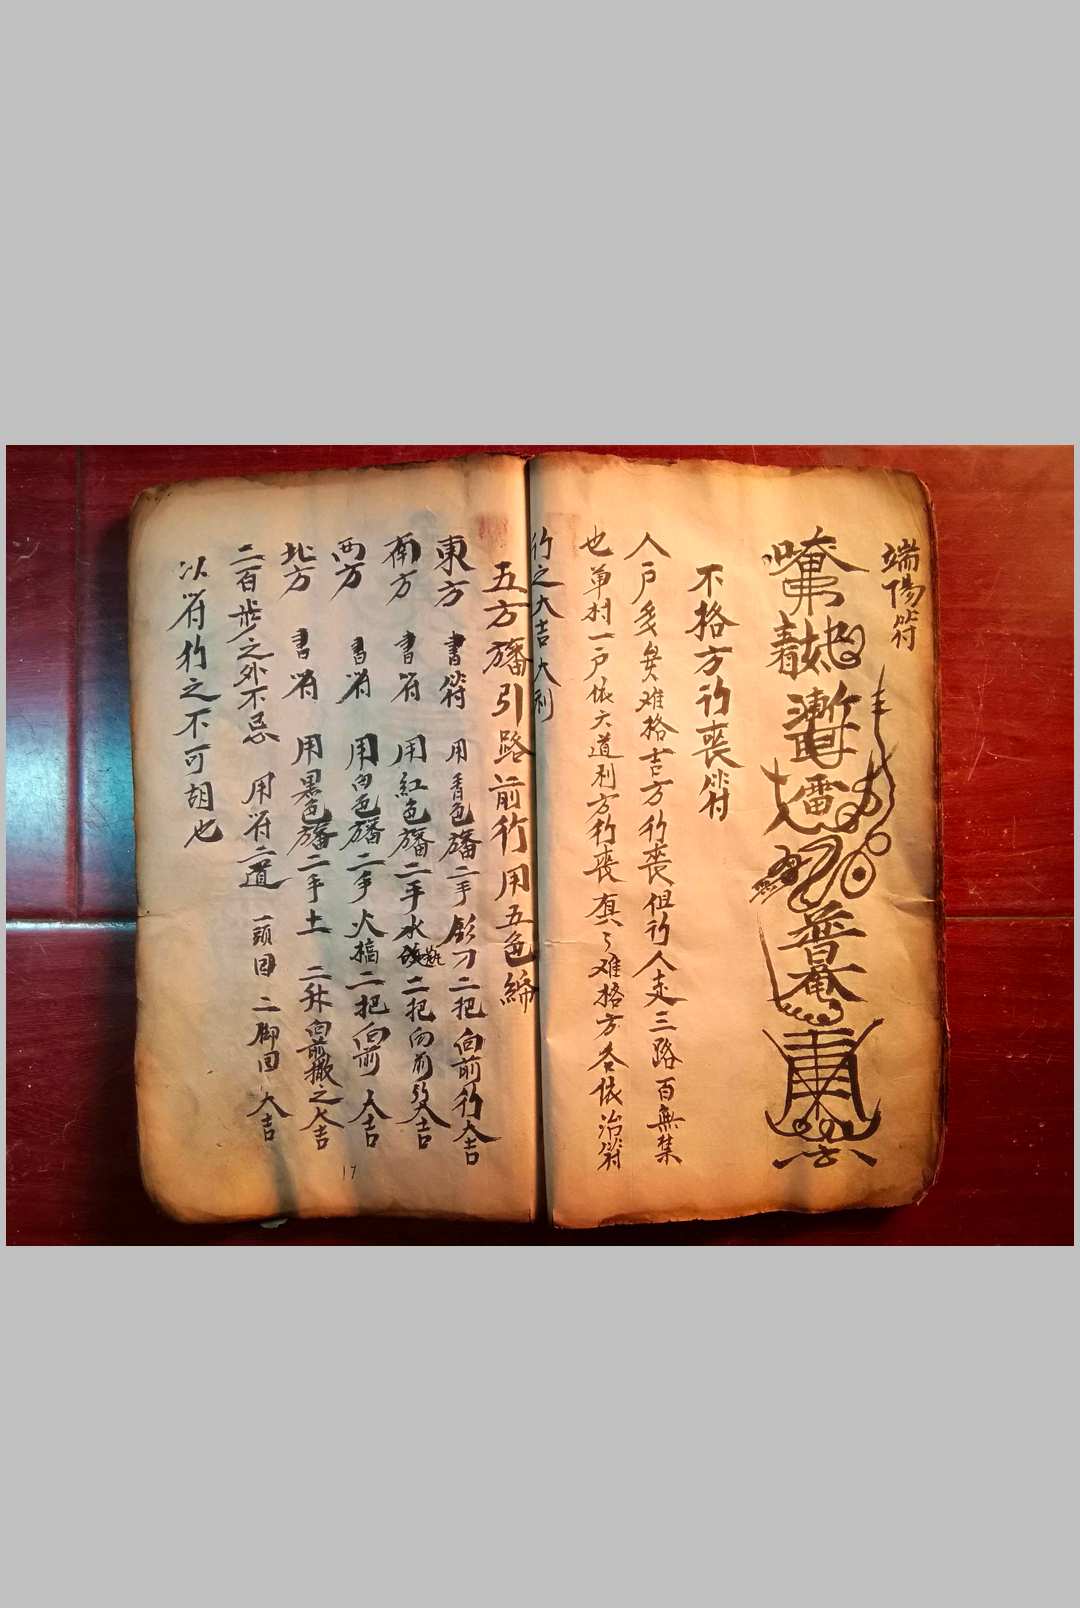 端陽符
唵
普庵
不格方行喪符
人户多矣难格吉方行喪但行人走三路百無禁
也单村一户依六道利方行喪真々难格方各依治符
行之大吉大利
五方旛引路前行用五色綿
東方 書符 用青色旛二手 刀二把向前行大吉
南方 書符 用紅色旛二手水 二把向前行大吉
西方 書符 用白色旛二手火搞二把向前 大吉
北方 書符 用黑色旛二手土 二升向前撒之大吉
二百步之外不忌 用符二道 一頭回 二脚回 大吉
以符行之不可胡也
17